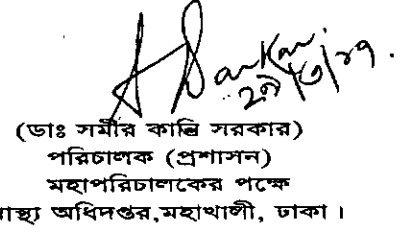 S Sarkar
২৯/৩/১৭.
(ডাঃ সমীর কান্তি সরকার)
পরিচালক (প্রশাসন)
মহাপরিচালকের পক্ষে
াস্থ্য অধিদপ্তর,মহাখালী, ঢাকা ।